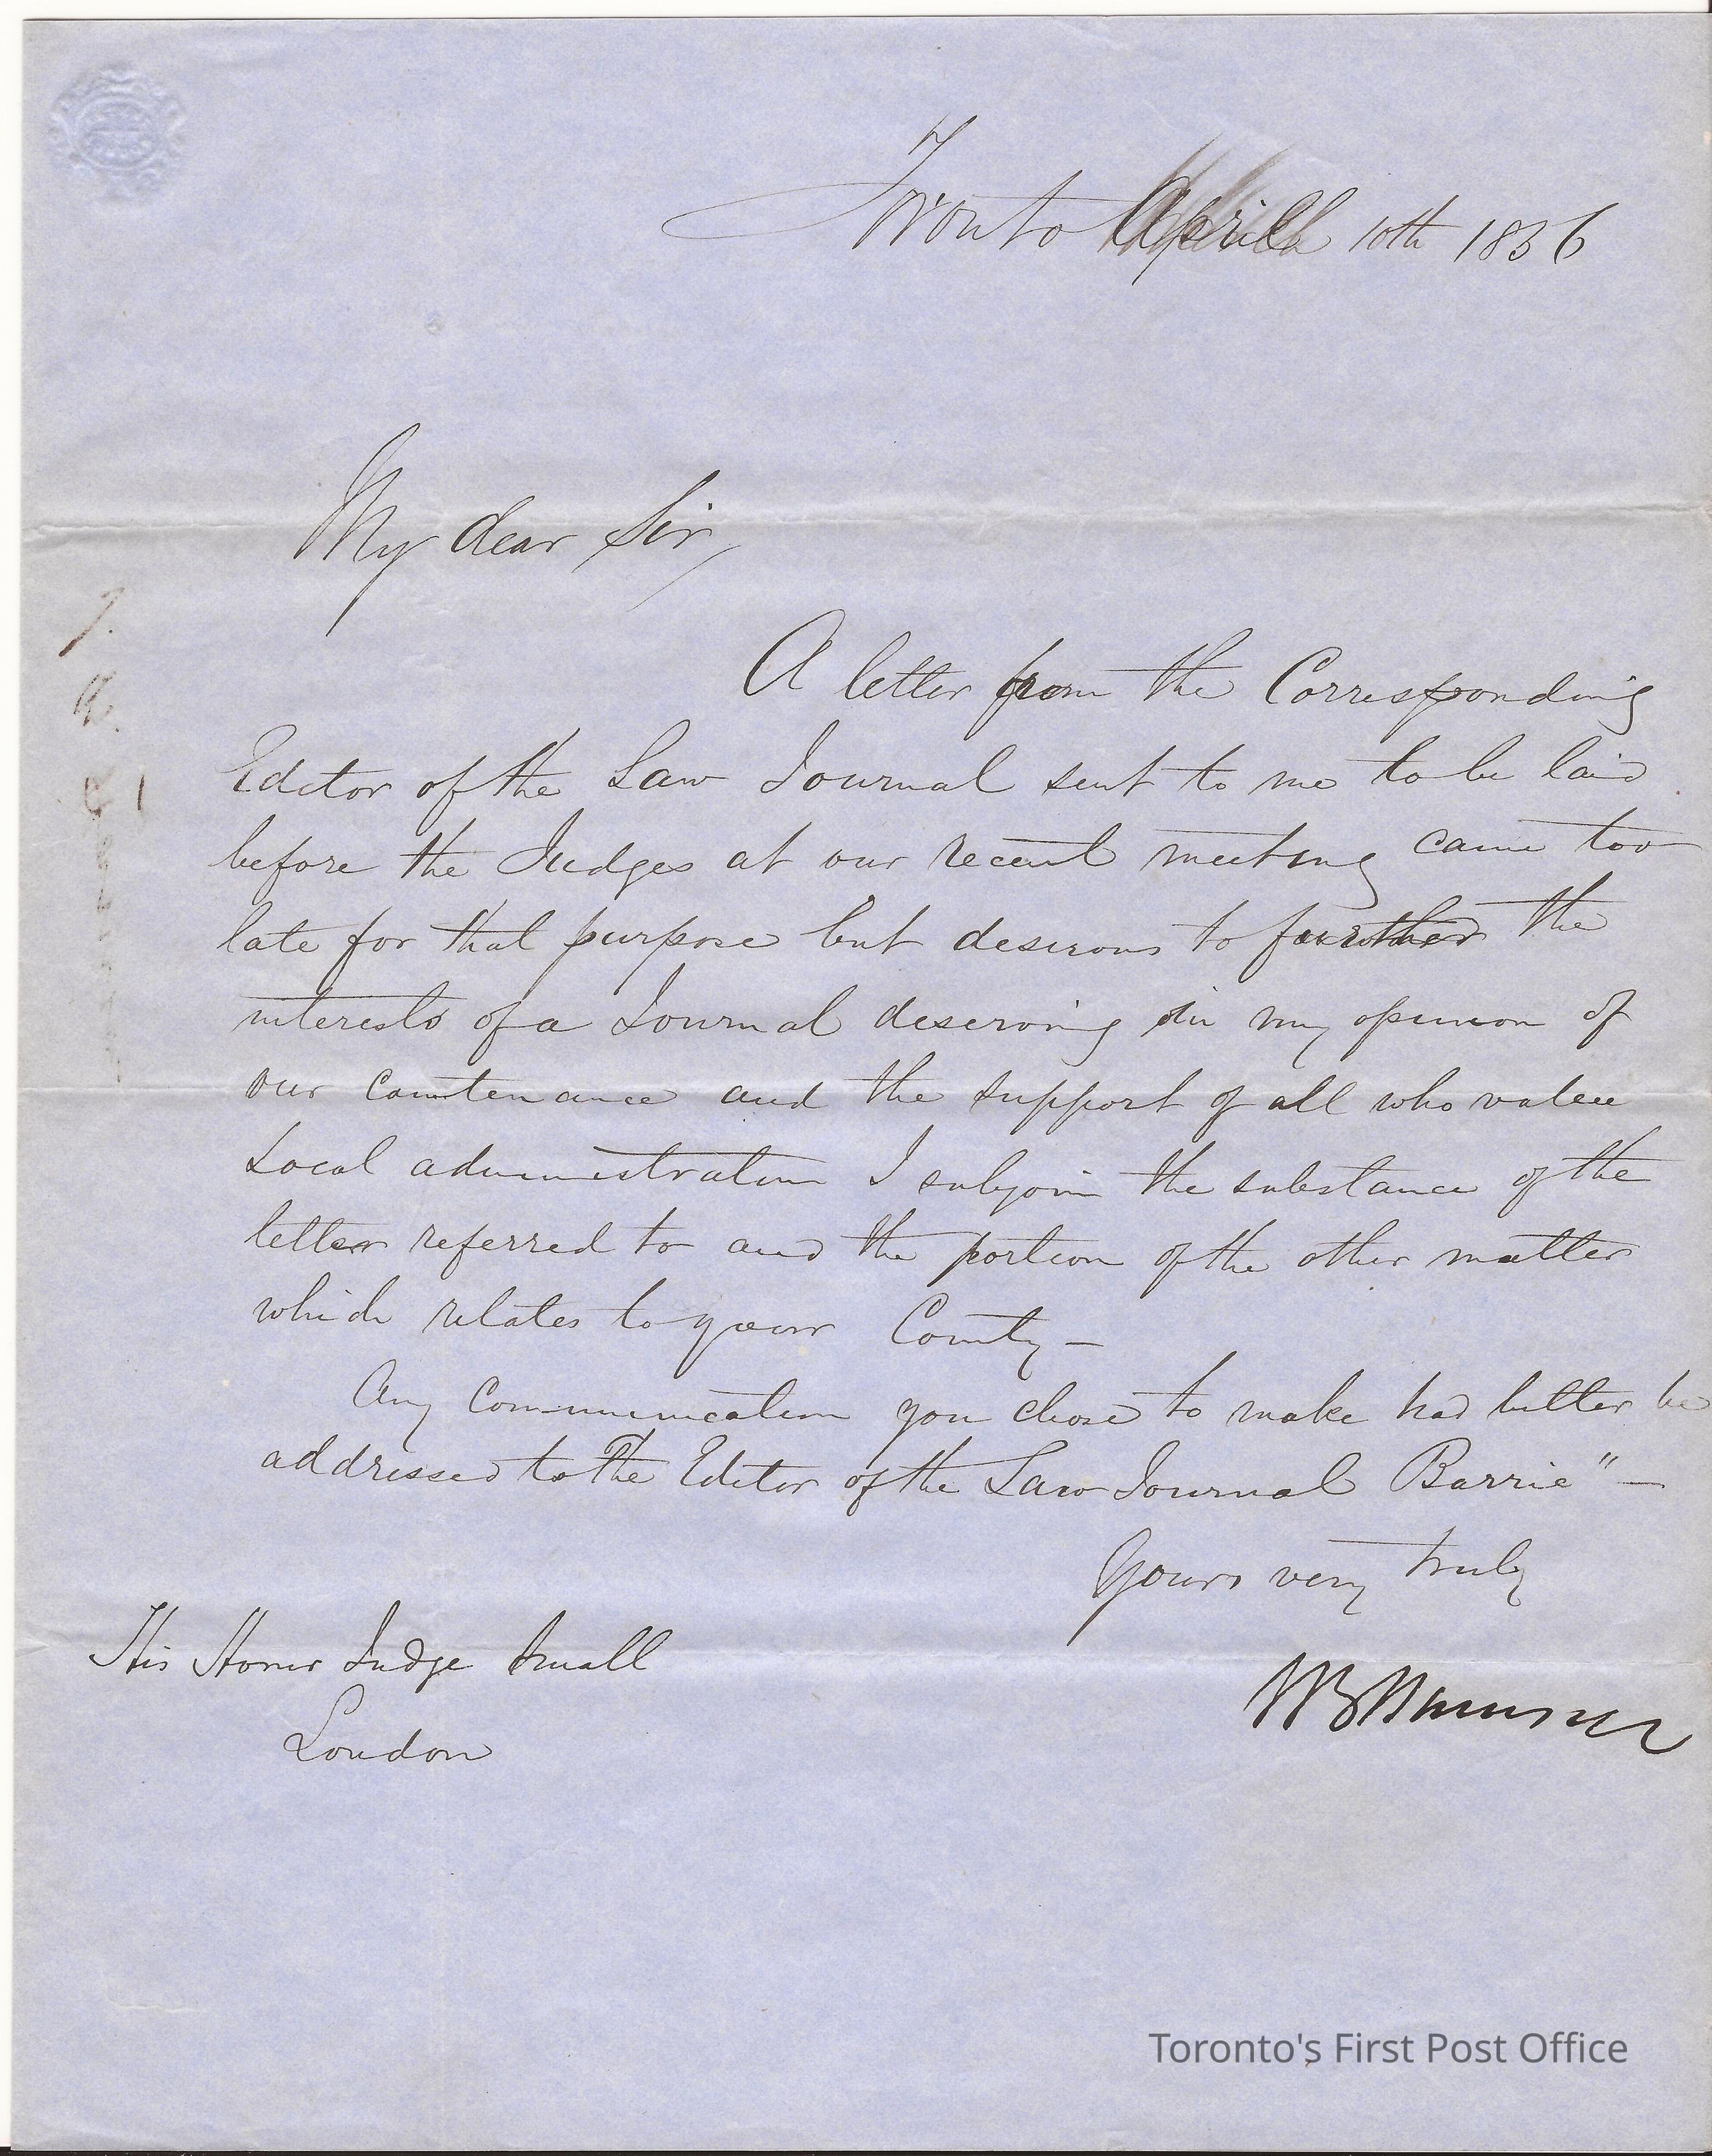 Toronto April 10th 1856
My dear Sir,
A letter from the Corresponding
Editor of the Law Journal sent to me to be laid
before the Judges at our recent meeting came too
late for that purpose but desirous to further the
interests of a Journal deserving in my opinion of
our countenance and the support of all who value
Local administration I subjoin the substance of the
letter referred to and the portion of the other matter
which relates to your County —
Any Communication you chose to make had better be
addressed to the Editor of the Law Journal Barrie" —
Yours very truly
His Honor Judge Small
London
Toronto's First Post Office